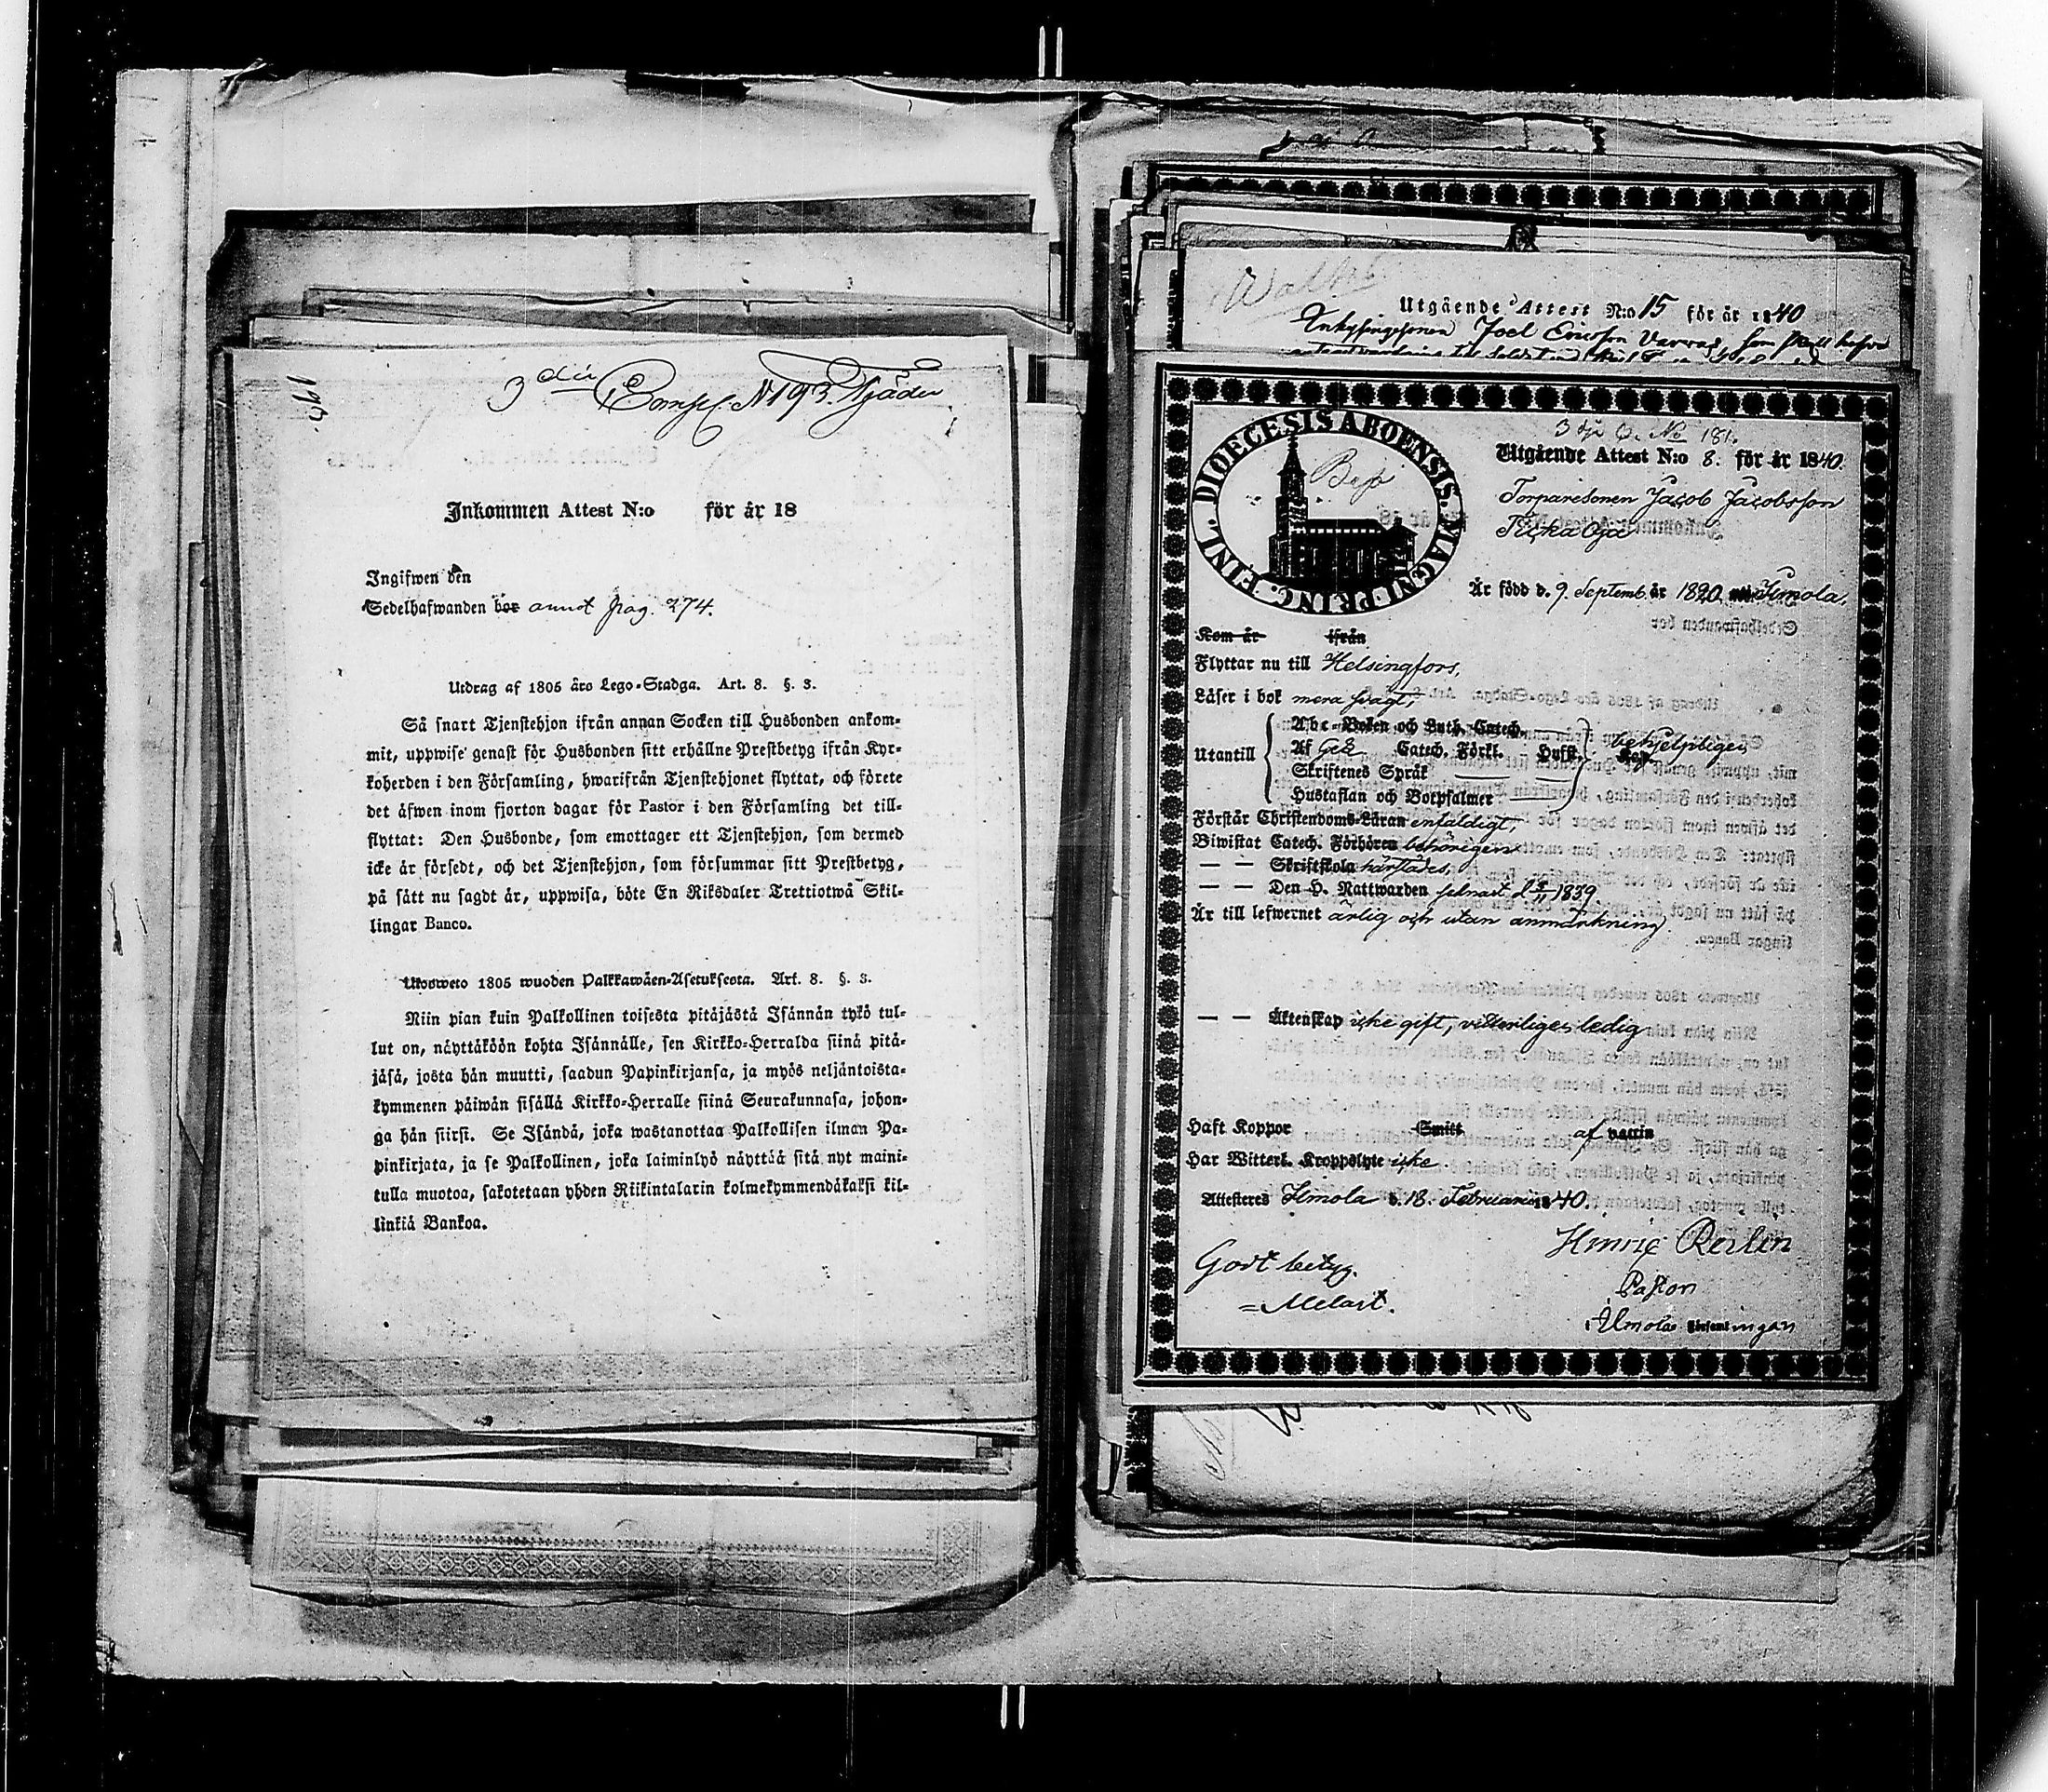 193.
3die Compl. N193. Fjäder
Inkommen Attest N:o för år 18
Ingifwen den
Sedelhafwanden bor annot pag. 274.
Utdrag af 1805 års Lego-Stadga. Art. 8. §. 3.
Så snart Tjenstehjon ifrån annan Socken till Husbonden ankom-
mit, uppwise genast för Husbonden sitt erhållne Prestbetyg ifrån Kyr-
koherden i den Församling, hwarifrån Tjenstehjonet flyttat, och förete
det äfwen inom fjorton dagar för Pastor i den Församling det till-
flyttat: Den Husbonde, som emottager ett Tjenstehjon, som dermed
icke är försedt, och det Tjenstehjon, som försummar sitt Prestbetyg,
på sätt nu sagdt är, uppwisa, böte En Riksdaler Trettiotwå Skil-
lingar Banco.
Ulosweto 1805 wuoden Palkkawäen-Asetuksesta. Art. 8. §. 3.
Niin pian kuin Palkollinen toisesta pitäjästä Isännän tykö tul-
lut on, näyttäköön kohta Isännälle, sen Kirkko-Herralda siinä pitä-
jäsä, josta hän muutti, saadun Papinkirjansa, ja myös neljäntoista-
kymmenen päiwän sisällä Kirkko-Herralle siinä Seurakunnasa, johon-
ga hän siirsi. Se Isändä, joka wastanottaa Palkollisen ilman Pa-
pinkirjata, ja se Palkollinen, joka laiminlyö näyttää sitä nyt maini-
tulla muotoa, sakotetaan yhden Riikintalarin kolmekymmendäkaksi kil-
linkiä Bankoa.
Utgående Attest N:o 15 för år 1840
Joel Ericsson Varras, som skall
DIOECESIS ABOENSIS. MAGNI PRINC. FINL.
3dje C. No 181.
Utgående Attest N:o 8. för år 1840.
Torparesonen Jacob Jacobsson
Är född d. 9. Septemb. år 1820 Ilmola.
Kom år ifrån
Flyttar nu till Helsingfors,
Läser i bok mera svagt,
Utantill
Abc-Boken och Luth. Catech.
Af Catech. Förkl. Husft.
behjelpligen
Skriftenes Språk
Hustaflan och Botpsalmer
Förstår Christendoms-Läran enfaldigt,
Biwistat Catech. Förhören behörigen
— — Skriftskola härstädes,
— — Den H. Nattwarden senast d 1839
Är till lefwernet ärlig och utan anmärkning.
— — Äktenskap icke gift, vitterligen ledig
Haft Koppor Smitt af vaccin
Har Witterl. Kroppslyte icke
Attesteres Ilmola d. 18. Februarii 1840.
Henric Reilin
Pastor
i Ilmola Församlingan
Godt betyg.
= Melart.